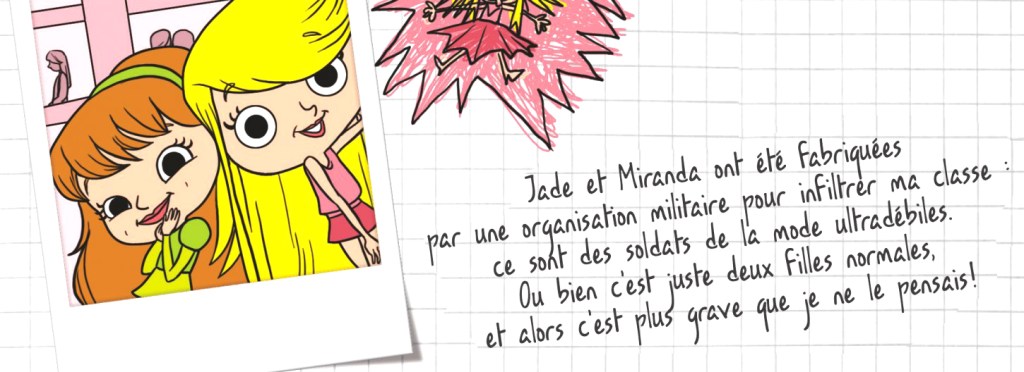 Jade et Miranda ont été fabriquées
par une organisation militaire pour infiltrer ma classe :
ce sont des soldats de la mode ultradébiles.
Ou bien c'est juste deux filles normales,
et alors c'est plus grave que je ne le pensais!